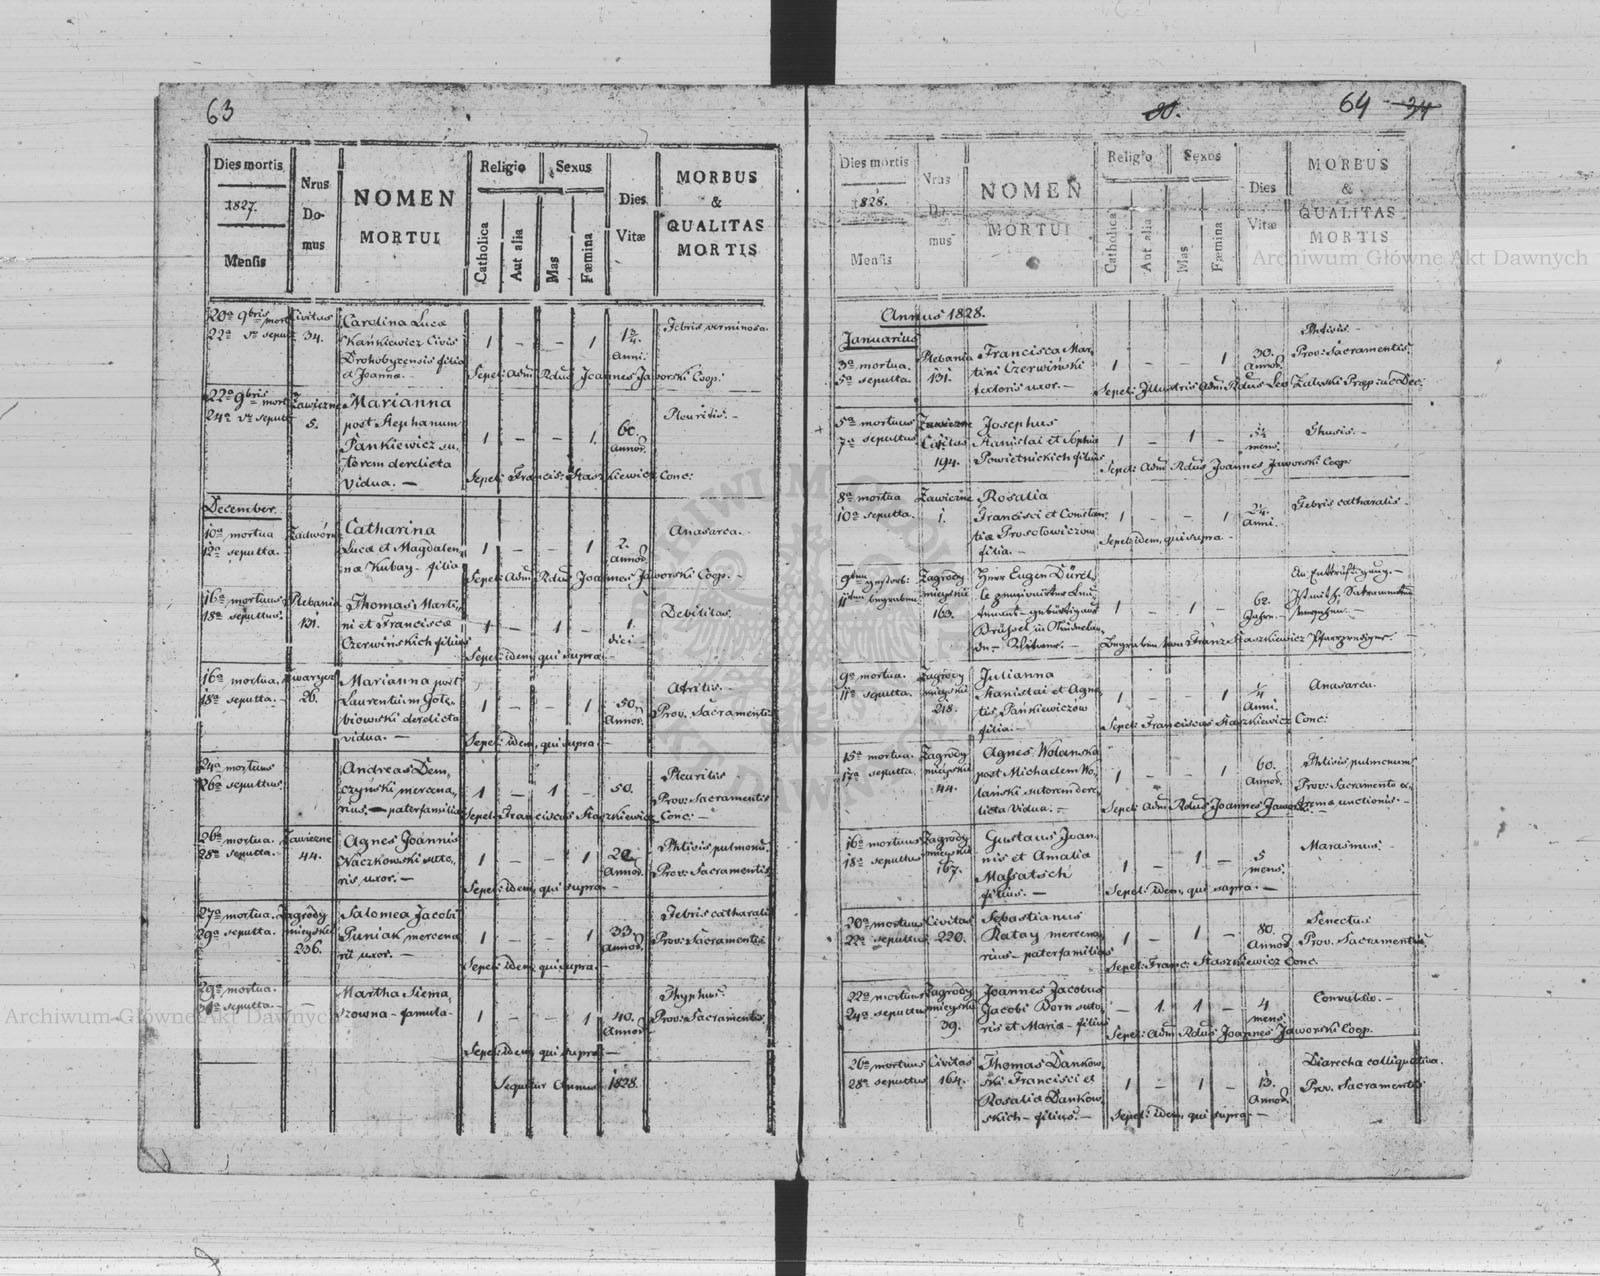 63
Dies mortis
1827.
Mensis
Nrus
Do-
mus
NOMEN
MORTUI
Religio
Catholica
Aut alia
Sexus
Mas
Fæmina
Dies
Vitæ
MORBUS
&
QUALITAS
MORTIS
20a 9bris mort
22a seput
Civitas
34.
Carolina Lucæ
Kańkiewicz Civis
Drohobycensis filia
1 – – 1
Anni.
Febris verminosa.
Sepel: Adm Rdus Joannes Jaworski Coop:
22a 9bris mort
24a seput
Zawiezne
5.
Marianna
post Stephanum
Pankiewicz su-
torem derelicta
Vidua. –
1 – – 1
60.
Annor.
Pleuritis. –
Sepel: Francis: Staszkiewicz Conc:
December.
10a mortua
12a seputta.
Zadwórn
Catharina
Lucæ et Magdalen-
næ Kubay – filia
1 – – 1
2.
Annor.
Anasarca. –
Sepel: Adm Rdus Joannes Jaworski Coop. –
16a mortuus
18a seputtus.
Plebania
131.
Thomas Marti-
ni et Franciscæ
Czerwińskich filius
1 – 1 –
1.
diei –
Debilitas.
Sepel: idem qui supra –
16a mortua.
18a seputta.
26.
Marianna post
Laurentium Gołę-
biowski derelicta
vidua. –
1 – – 1
50.
Annor.
Prov. Sacramentis
Sepel: idem, qui supra –
24a mortuus
26a seputtus.
Andreas Dem-
czyński mercena-
rius. – paterfamilias
1 – 1 –
50.
Pleuritis –
Prov: Sacramentis
Sepel: Franciscus Staszkiewicz Conc: –
26a mortua.
28a seputta. –
Zawiezne
44.
Agnes Joannis
Waczkowski suto-
ris uxor. –
1 – – 1
Annor.
Phtisis pulmonu.
Prov: Sacramentis
Sepel: idem, qui supra –
27a mortua.
29a seputta.
Zagrody
mieyskie
236.
Salomea Jacobi
Puniak mercena
rii uxor. –
1 – – 1
33.
Annor.
Febris catharalis
Prov: Sacramentis
Sepel: idem, qui supra. –
29a mortua.
seputta. –
–
Martha Siema-
szowna – famula –
1 – – 1
40.
Annor.
Thyphus.
Prov: Sacramentis
Sepel: idem, qui supra –
Sequitur Annus 1828.
30.
64 34
Dies mortis
1828.
Mensis
Nrus
Do-
mus
NOMEN
MORTUI
Religio
Catholica
Aut alia
Sexus
Mas
Fæmina
Dies
Vitæ
MORBUS
&
QUALITAS
MORTIS
Annus 1828.
Januarius
3a mortua.
5a seputta.
Plebania
131.
Francisca Mar-
tini Czerwiński
textoris uxor. –
1 – – 1
30.
Annor.
Phtisis. –
Prov: Sacramentis.
Sepel: Illustris Adm Rdus Leo Zaluski
5a mortuus
7a seputtus
Zawiezne
Civitas
194.
Josephus
Stanislai et Sophiæ
Powietnickich filius
1 – 1 –
mens.
Thusis. –
Sepel: Adm Rdus Joannes Jaworski Coop:
8a mortua
10a seputta.
Zawiezne
1.
Rosalia
Francisci et Constan-
tiæ Prosołowiczow
filia. –
1 – – 1
Anni.
Febris catharalis –
Sepel: idem, qui supra –
9ten gestorb:
11ten begraben
Zagrody
mieyskie
163.
Herr Eugen
pensionirter
gebürtig aus
Brüssel in
Witwer. –
1 – 1 –
62.
Jahre. –
An Entkräftigung. –
Begraben von Franz Staszkiewicz
9a mortua.
11a seputta.
Zagrody
mieyskie
218.
Julianna
Stanislai et Agne-
tis Pańkiewiczow
filia. –
1 – – 1
Anni.
Anasarca.
Sepel: Franciscus Staszkiewicz Conc:
15a mortua.
17a seputta.
Zagrody
mieyskie
44.
Agnes Wolanska
post Michaelem Wo-
lański sutorem dere-
licta Vidua. –
1 – – 1
60.
Annor.
Phtisis pulmonum
Prov: Sacramento ex-
tremæ unctionis. –
Sepel: Adm Rdus Joannes Jaworski
16a mortuus
18a seputtus
Zagrody
mieyskie
167.
Gustaus Joan-
nis et Amalia
Massatsch
filius. –
1 – 1 –
5
mens.
Marasmus. –
Sepel: idem, qui supra. –
20a mortuus
22a seputtus
Civitas
220.
Sebastianus
Ratay mercena-
rius – paterfamilias
1 – 1 –
80.
Annor.
Senectus
Prov. Sacramentis.
Sepel: Franc: Staszkiewicz Conc.
22a mortuus
24a seputtus
Zagrody
mieyskie
39.
Joannes Jacobus
Jacobi Dorn suto-
ris et Mariæ – filius
– 1 1 –
4
mens.
Convulsio. –
Sepel: Adm Rdus Joannes Jaworski Coop.
26a mortuus
28a seputtus
Civitas
164.
Thomas Dankow-
ski Francisci et
Rosaliæ Dankow-
skich – filius. –
1 – 1 –
13.
Annor.
Diarrhea colliquativa.
Prov. Sacramentis
Sepel: idem, qui supra –
Archiwum Główne Akt Dawnych
Archiwum Główne Akt Dawnych